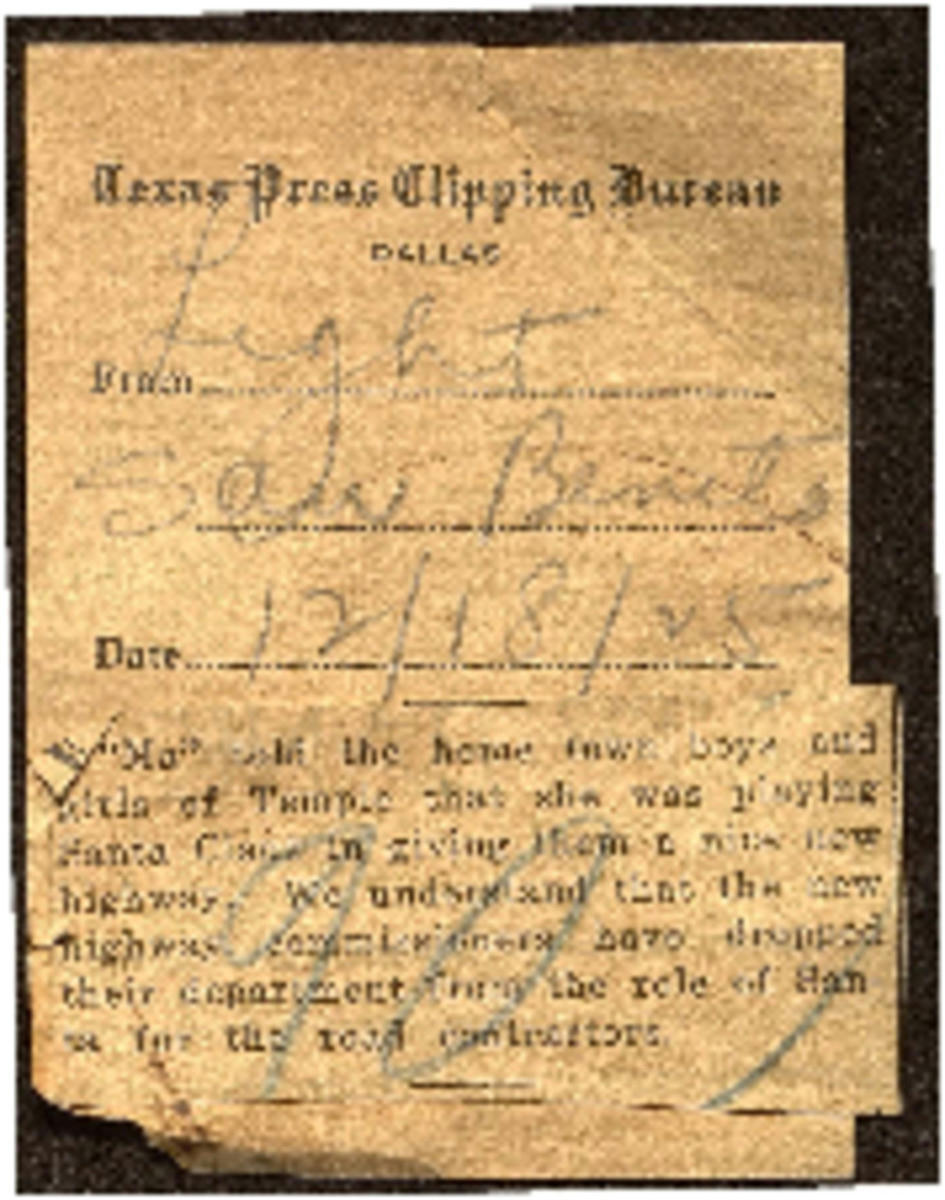 Texas Press Clipping Bureau
DALLAS
Light
From
San Benito
Date 12/18/25
"Ma" told the home town boys and
girls of Temple that she was playing
Santa Claus in giving them a nice new
highway. We understand that the new
highway commissioners have dropped
their department from the role of San-
ta for the road contractors.